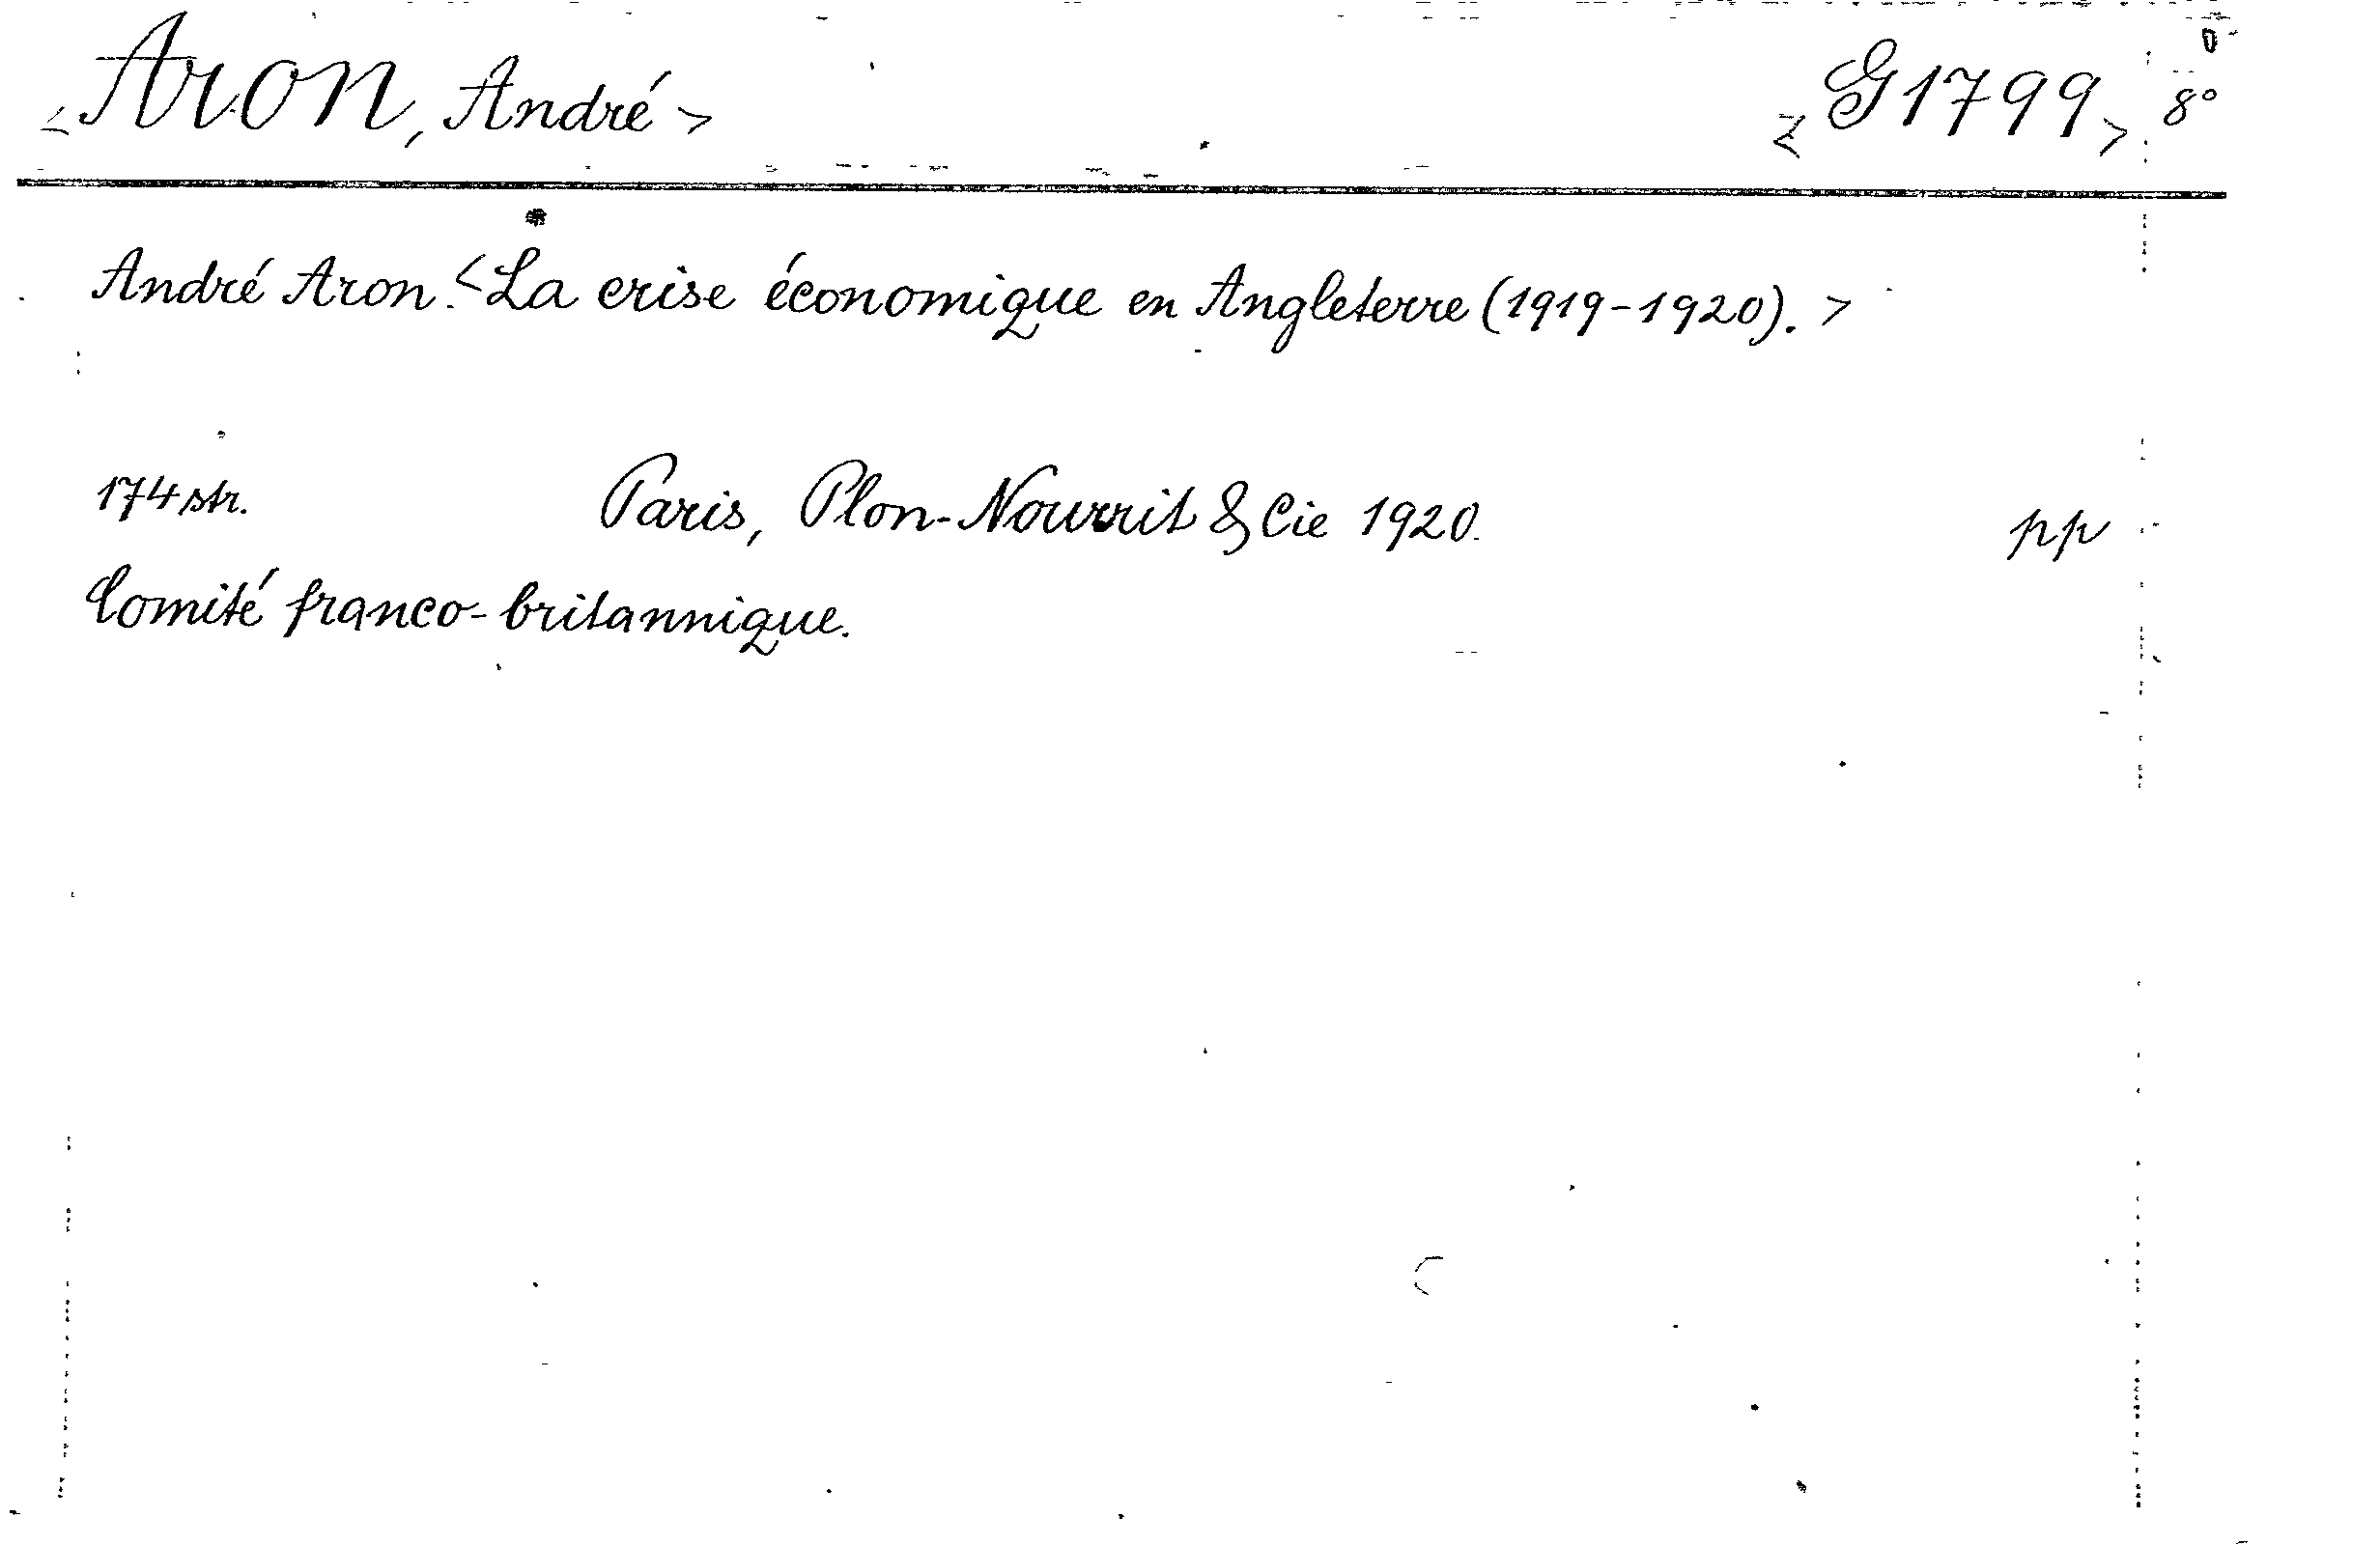 <Aron, André> <G1799> 8°
André Aron. <La crise économique en Angleterre (1919-1920).>
174 str. Paris, Plon-Nourrit & Cie 1920. pp
Comité franco-britannique.